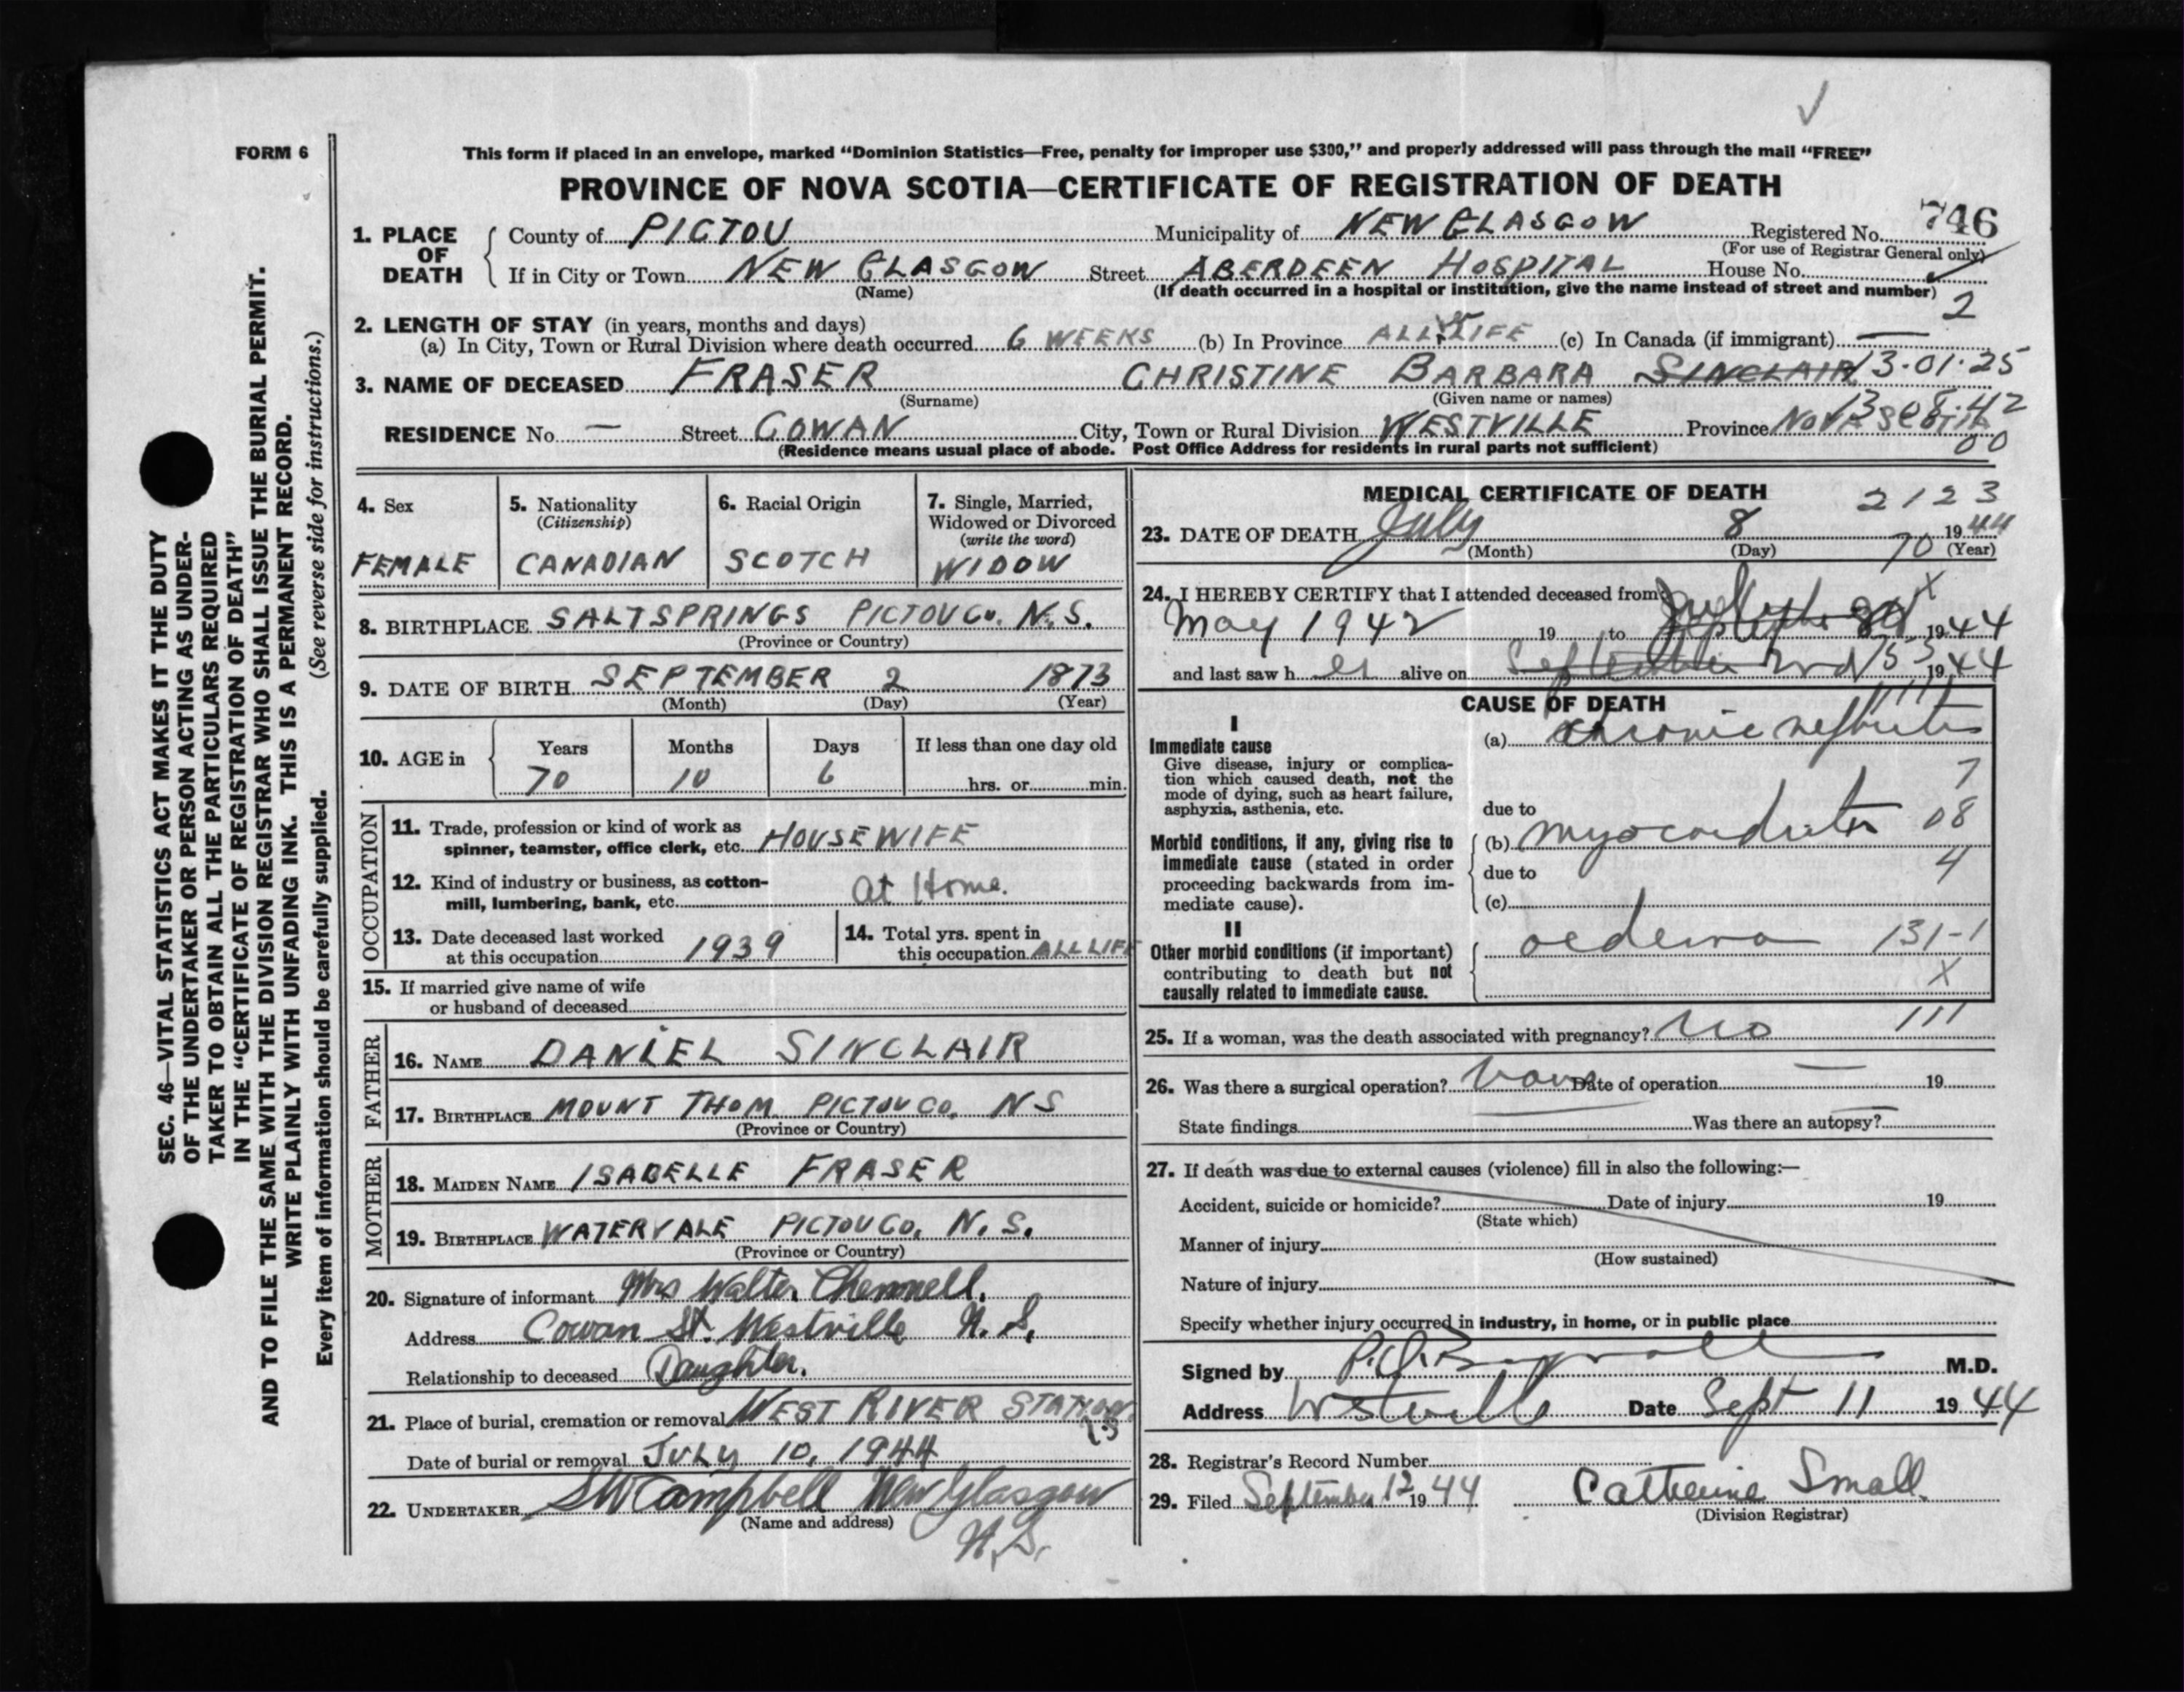 FORM 6
This form if placed in an envelope, marked “Dominion Statistics—Free, penalty for improper use $300,” and properly addressed will pass through the mail “FREE”
PROVINCE OF NOVA SCOTIA—CERTIFICATE OF REGISTRATION OF DEATH
746
1. PLACE OF DEATH
County of PICTOU Municipality of NEW GLASGOW Registered No.
(For use of Registrar General only)
If in City or Town NEW GLASGOW Street ABERDEEN HOSPITAL House No.
(Name) (If death occurred in a hospital or institution, give the name instead of street and number)
2
2. LENGTH OF STAY (in years, months and days)
(a) In City, Town or Rural Division where death occurred 6 WEEKS (b) In Province ALL LIFE (c) In Canada (if immigrant) —
3. NAME OF DECEASED FRASER CHRISTINE BARBARA SINCLAIR 13-01-25
(Surname) (Given name or names)
RESIDENCE No. — Street COWAN City, Town or Rural Division WESTVILLE Province NOVA SCOTIA
(Residence means usual place of abode. Post Office Address for residents in rural parts not sufficient)
00
4. Sex FEMALE
5. Nationality (Citizenship) CANADIAN
6. Racial Origin SCOTCH
7. Single, Married, Widowed or Divorced (write the word) WIDOW
8. BIRTHPLACE SALTSPRINGS PICTOU Co. N.S.
(Province or Country)
9. DATE OF BIRTH SEPTEMBER 2 1873
(Month) (Day) (Year)
10. AGE in
Years Months Days If less than one day old
70 10 6 hrs. or min.
OCCUPATION
11. Trade, profession or kind of work as spinner, teamster, office clerk, etc. HOUSEWIFE
12. Kind of industry or business, as cotton-mill, lumbering, bank, etc. at Home.
13. Date deceased last worked at this occupation 1939
14. Total yrs. spent in this occupation ALL LIFE
15. If married give name of wife or husband of deceased
FATHER
16. NAME DANIEL SINCLAIR
17. BIRTHPLACE MOUNT THOM PICTOU CO. NS
(Province or Country)
MOTHER
18. MAIDEN NAME ISABELLE FRASER
19. BIRTHPLACE WATERVALE PICTOU CO. N.S.
(Province or Country)
20. Signature of informant Mrs Walter Chemnell.
Address Cowan St. Westville N.S.
Relationship to deceased Daughter.
21. Place of burial, cremation or removal WEST RIVER STATION
Date of burial or removal JULY 10, 1944
22. UNDERTAKER SW Campbell New Glasgow
(Name and address)
N.S.
MEDICAL CERTIFICATE OF DEATH 2123
23. DATE OF DEATH July 8 1944
(Month) (Day) (Year)
70
24. I HEREBY CERTIFY that I attended deceased from
May 1942 19 to 1944
and last saw h er alive on September 2nd 1944
CAUSE OF DEATH
I
Immediate cause
Give disease, injury or complication which caused death, not the mode of dying, such as heart failure, asphyxia, asthenia, etc.
(a) chronic nephritis
7
due to
Morbid conditions, if any, giving rise to immediate cause (stated in order proceeding backwards from immediate cause).
(b) myocarditis 08
due to 4
(c)
II
Other morbid conditions (if important) contributing to death but not causally related to immediate cause.
oedema 131-1
X
25. If a woman, was the death associated with pregnancy? no 111
26. Was there a surgical operation? Date of operation — 19
State findings Was there an autopsy?
27. If death was due to external causes (violence) fill in also the following:—
Accident, suicide or homicide? Date of injury 19
(State which)
Manner of injury
(How sustained)
Nature of injury
Specify whether injury occurred in industry, in home, or in public place
Signed by M.D.
Address Westville Date Sept 11 1944
28. Registrar's Record Number
29. Filed September 12 1944 Catherine Small.
(Division Registrar)
SEC. 46—VITAL STATISTICS ACT MAKES IT THE DUTY
OF THE UNDERTAKER OR PERSON ACTING AS UNDER-
TAKER TO OBTAIN ALL THE PARTICULARS REQUIRED
IN THE “CERTIFICATE OF REGISTRATION OF DEATH”
AND TO FILE THE SAME WITH THE DIVISION REGISTRAR WHO SHALL ISSUE THE BURIAL PERMIT.
WRITE PLAINLY WITH UNFADING INK. THIS IS A PERMANENT RECORD.
Every item of information should be carefully supplied. (See reverse side for instructions.)